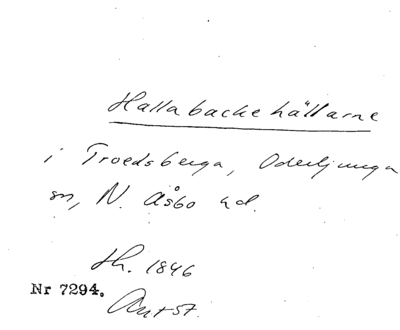 Hallabackehällarne
i Troedsberga, Oderljunga
sn, N. Åsbo hd.
th. 1846
Nr 7294.
Ant st.